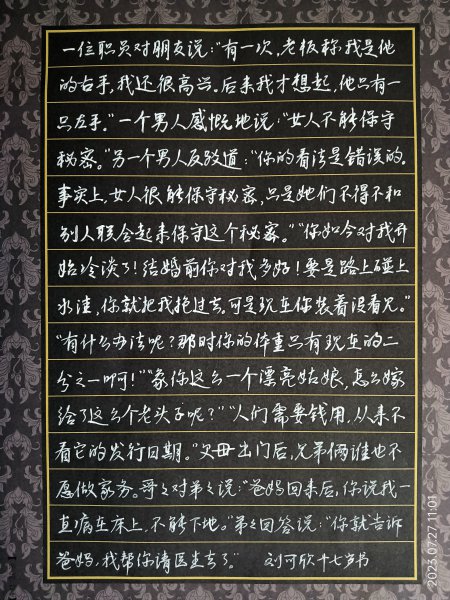 一位职员对朋友说:“有一次,老板称我是他
的右手,我还很高兴。后来我才想起,他只有一
只左手。”一个男人感慨地说:“女人不能保守
秘密。”另一个男人反驳道:“你的看法是错误的。
事实上,女人很能保守秘密,只是她们不得不和
别人联合起来保守这个秘密。”“你如今对我开
始冷淡了!结婚前你对我多好!要是路上碰上
水洼,你就把我抱过去。可是现在你装着没看见。”
“有什么办法呢?那时你的体重只有现在的二
分之一啊!”“象你这么一个漂亮姑娘,怎么嫁
给了这么个老头子呢?”“人们需要钱用,从来不
看它的发行日期。”父母出门后,兄弟俩谁也不
愿做家务。哥々对弟々说:“爸妈回来后,你说我一
直病在床上,不能下地。”弟々回答说:“你就告诉
爸妈,我帮你请医生去了。” 刘可欣十七岁书
2023 07 27 11:01